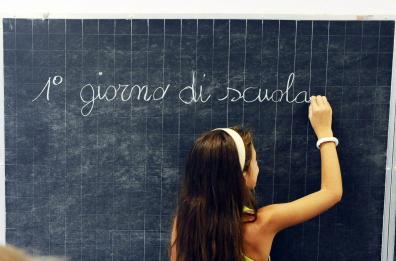 1° giorno di scuola